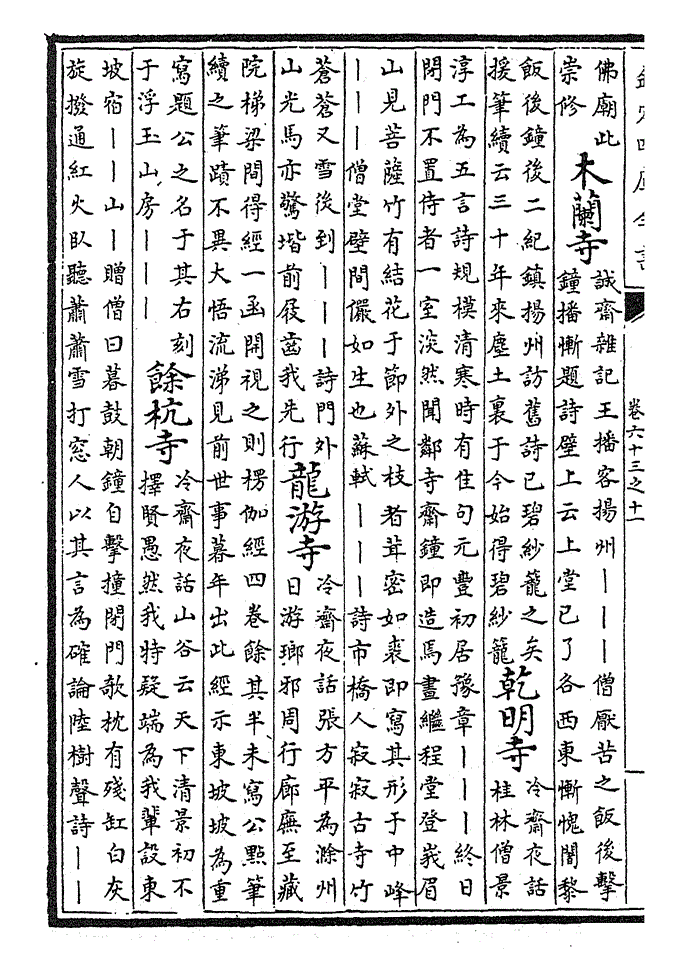 卷六十三之十一
佛廟此
崇修
木蘭寺
誠齋雜記王播客揚州｜｜｜僧厭苦之飯後擊
鐘播慚題詩壁上云上堂已了各西東慚愧闍黎
飯後鐘後二紀鎮揚州訪舊詩已碧紗籠之矣
援筆續云三十年來塵土裏于今始得碧紗籠
乾明寺
冷齋夜話
桂林僧景
淳工為五言詩規模清寒時有佳句元豐初居豫章｜｜｜終日
閉門不置侍者一室淡然聞鄰寺齋鐘即造焉畫繼程堂登峩眉
山見菩薩竹有結花于節外之枝者茸密如裘即寫其形于中峰
｜｜｜僧堂壁間儼如生也蘇軾｜｜｜詩市橋人寂寂古寺竹
蒼蒼又雪後到｜｜｜詩門外
山光馬亦驚堦前屐齒我先行
龍游寺
冷齋夜話張方平為滁州
日游瑯邪周行廊廡至藏
院梯梁間得經一函開視之則楞伽經四卷餘其半未寫公點筆
續之筆蹟不異大悟流涕見前世事暮年出此經示東坡坡為重
寫題公之名于其右刻
于浮玉山房｜｜｜
餘杭寺
冷齋夜話山谷云天下清景初不
擇賢愚然我特疑端為我輩設東
坡宿｜｜山｜贈僧曰暮鼓朝鐘自擊撞閉門欹枕有殘缸白灰
旋撥通紅火臥聽蕭蕭雪打窓人以其言為確論陸樹聲詩｜｜